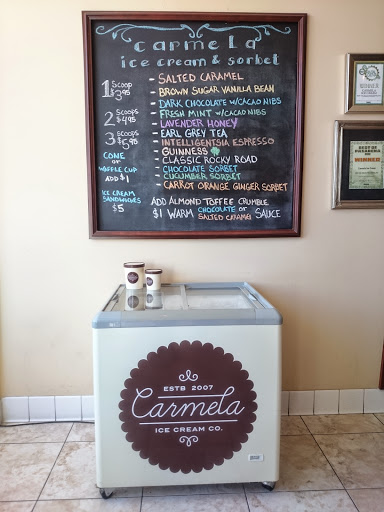 carmela
ice cream & sorbet
1 SCOOP $3.95
2 SCOOPS $4.95
3 SCOOPS
CONE or WAFFLE CUP ADD $1
ICE CREAM SANDWICHES $5
- SALTED CARAMEL
- BROWN SUGAR VANILLA BEAN
- DARK CHOCOLATE W/CACAO NIBS
- FRESH MINT W/CACAO NIBS
- LAVENDER HONEY
- EARL GREY TEA
- INTELLIGENTSIA ESPRESSO
- GUINNESS
- CLASSIC ROCKY ROAD
- CHOCOLATE SORBET
- CUCUMBER SORBET
- CARROT ORANGE GINGER SORBET
ADD ALMOND TOFFEE CRUMBLE
$1 WARM CHOCOLATE or SALTED CARAMEL SAUCE
WINNER
BEST OF PASADENA
ESTB 2007
Carmela
ICE CREAM CO.